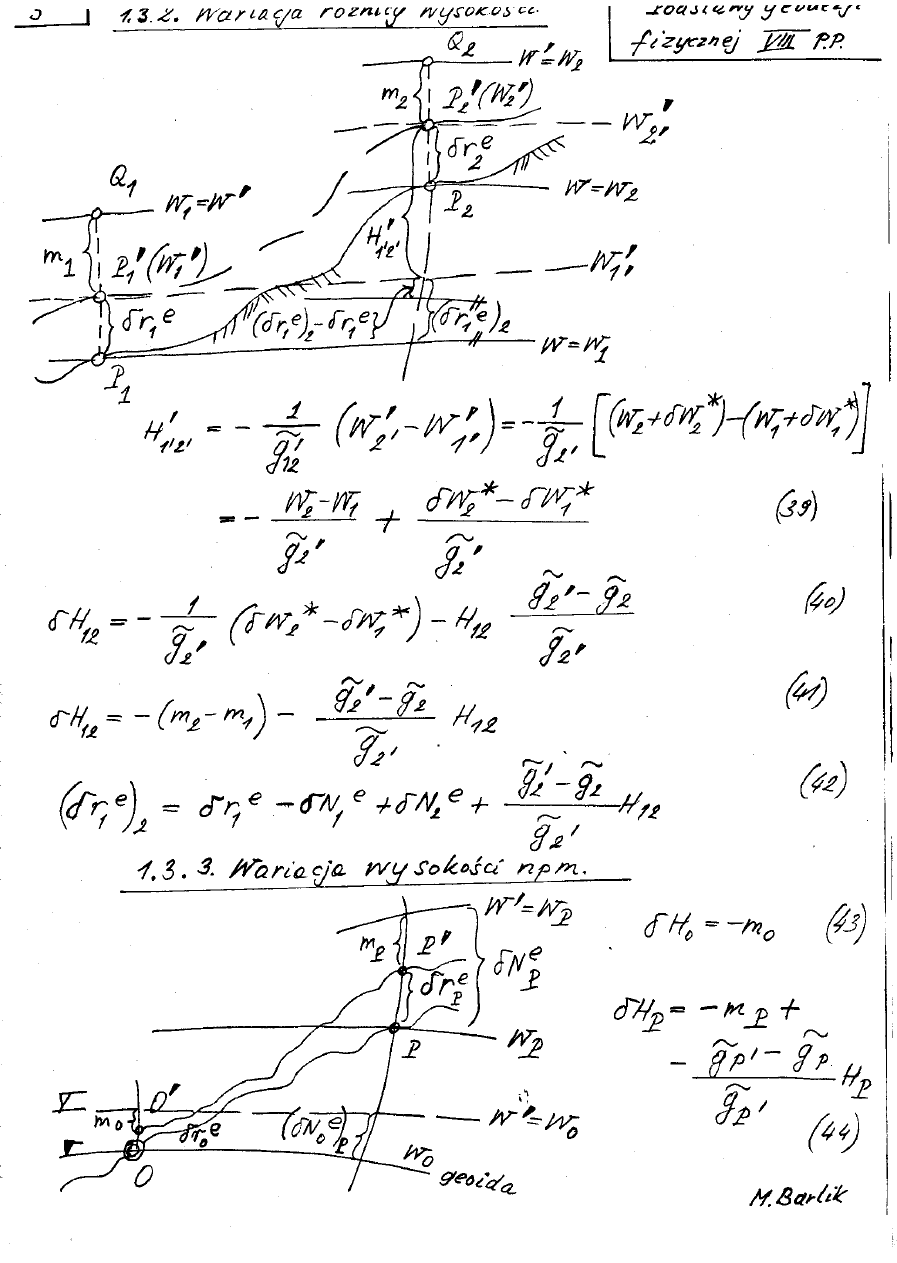 1.3.2. Wariacja różnicy wysokości.
fizycznej VIII P.P.
Q₂
W'=W₂
m₂
P₂'(W₂'')
W₂'''
δr₂ᵉ
Q₁
W₁=W'
P₂
W=W₂
H'₁'₂'
m₁
P₁'(W₁'')
W₁'''
δr₁ᵉ
(δr₁ᵉ)₂-δr₁ᵉ
(δr₁ᵉ)₂
W=W₁
P₁
H'₁'₂' = - 1/g̃'₁₂ (W'₂' - W'₁') = - 1/g̃₂' [(W₂+δW₂*)-(W₁+δW₁*)]
= - (W₂-W₁)/g̃₂' + (δW₂*-δW₁*)/g̃₂' (39)
δH₁₂ = - 1/g̃₂' (δW₂*-δW₁*) - H₁₂ (g̃₂'-g̃₂)/g̃₂' (40)
δH₁₂ = -(m₂-m₁) - (g̃₂'-g̃₂)/g̃₂' H₁₂ (41)
(δr₁ᵉ)₂ = δr₁ᵉ - δN₁ᵉ + δN₂ᵉ + (g̃₂'-g̃₂)/g̃₂' H₁₂ (42)
1.3.3. Wariacja wysokości npm.
W'=W_P
m_P
P'
δN_Pᵉ
δr_Pᵉ
P
W_P
δH₀ = -m₀ (43)
δH_P = -m_P +
- (g̃_P' - g̃_P)/g̃_P' H_P
(44)
m₀
O'
δr₀ᵉ
(δN₀ᵉ)_P
W'=W₀
O
W₀
geoida
M. Barlik